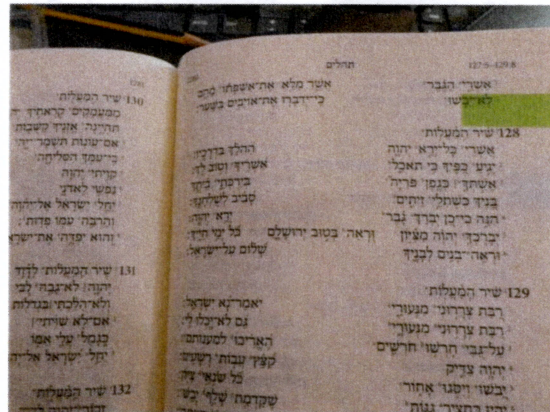 127:5–129:8
תהלים
אשרי הגבר אשר מלא את־אשפתו מהם
לא־יבשו כי־ידברו את־אויבים בשער׃
128 שיר המעלות
אשרי כל־ירא יהוה ההלך בדרכיו׃
יגיע כפיך כי תאכל אשריך וטוב לך׃
אשתך כגפן פריה בירכתי ביתך
בניך כשתלי זיתים סביב לשלחנך׃
הנה כי־כן יברך גבר ירא יהוה׃
יברכך יהוה מציון וראה בטוב ירושלם כל ימי חייך׃
וראה־בנים לבניך שלום על־ישראל׃
129 שיר המעלות
רבת צררוני מנעורי יאמר־נא ישראל׃
רבת צררוני מנעורי גם לא־יכלו לי׃
על־גבי חרשו חרשים האריכו למענותם׃
יהוה צדיק קצץ עבות רשעים׃
יבשו ויסגו אחור כל שנאי
יהיו כחציר גגות שקדמת שלף
130 שיר המעלות
ממעמקים קראתיך
תהיינה אזניך קשבות
אם־עונות תשמר־יה
כי־עמך הסליחה
קויתי יהוה
נפשי לאדני
יחל ישראל אל־יהוה
והרבה עמו פדות׃
והוא יפדה את־ישראל
131 שיר המעלות לדוד
יהוה לא־גבה לבי
ולא־הלכתי בגדלות
אם־לא שויתי
כגמל עלי אמו
יחל ישראל אל־יהוה
132 שיר המעלות